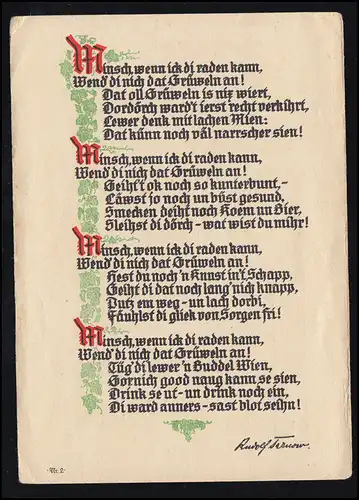 Minsch, wenn ick di raden kann,
Wend' di nich dat Grüweln an!
Dat oll Grüweln is nix wiert,
Dordörch ward't ierst recht verkihrt,
Lewer denk mit lachen Mien:
Dat künn noch väl narrscher sien!
Minsch, wenn ick di raden kann,
Wend' di nich dat Grüweln an!
Geiht't ok noch so kunterbunt,-
Läwst jo noch un büst gesund,
Smecken deiht noch Koem un Bier,
Sleihst di dörch - wat wist du mihr!
Minsch, wenn ick di raden kann,
Wend' di nich dat Grüweln an!
Hest du noch 'n Knust in't Schapp,
Geiht di dat noch lang' nich knapp,
Putz em weg - un lach dorbi,
Fäuhlst di gliek von Sorgen fri!
Minsch, wenn ick di raden kann,
Wend' di nich dat Grüweln an!
Tüg' di lewer 'n Buddel Wien,
Gornich good naug kann se sien,
Drink se ut - un drink noch ein,
Di ward anners - sast blot seihn!
Rudolf Tarnow.
·Nr. 2·